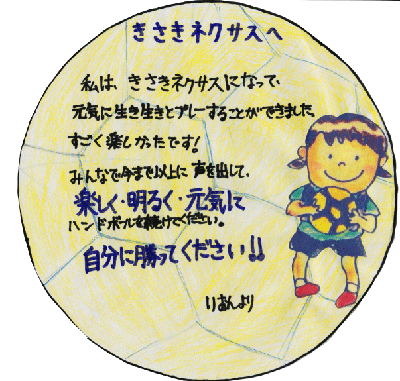 きさきネクサスへ
私は、きさきネクサスになって、
元気に生き生きとプレーすることができました。
すごく楽しかったです!
みんなで今まで以上に声を出して、
楽しく・明るく・元気に
ハンドボールを続けてください。
自分に勝ってください!!
りおんより